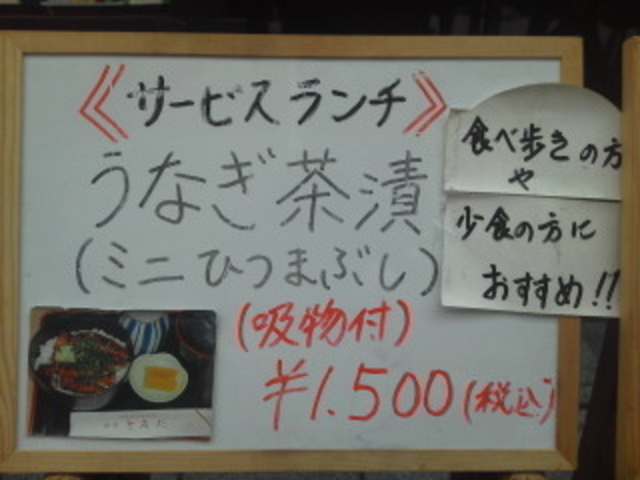 《サービスランチ》
うなぎ茶漬
(ミニひつまぶし)
(吸物付)
¥1.500(税込)
食べ歩きの方
や
少食の方に
おすすめ!!